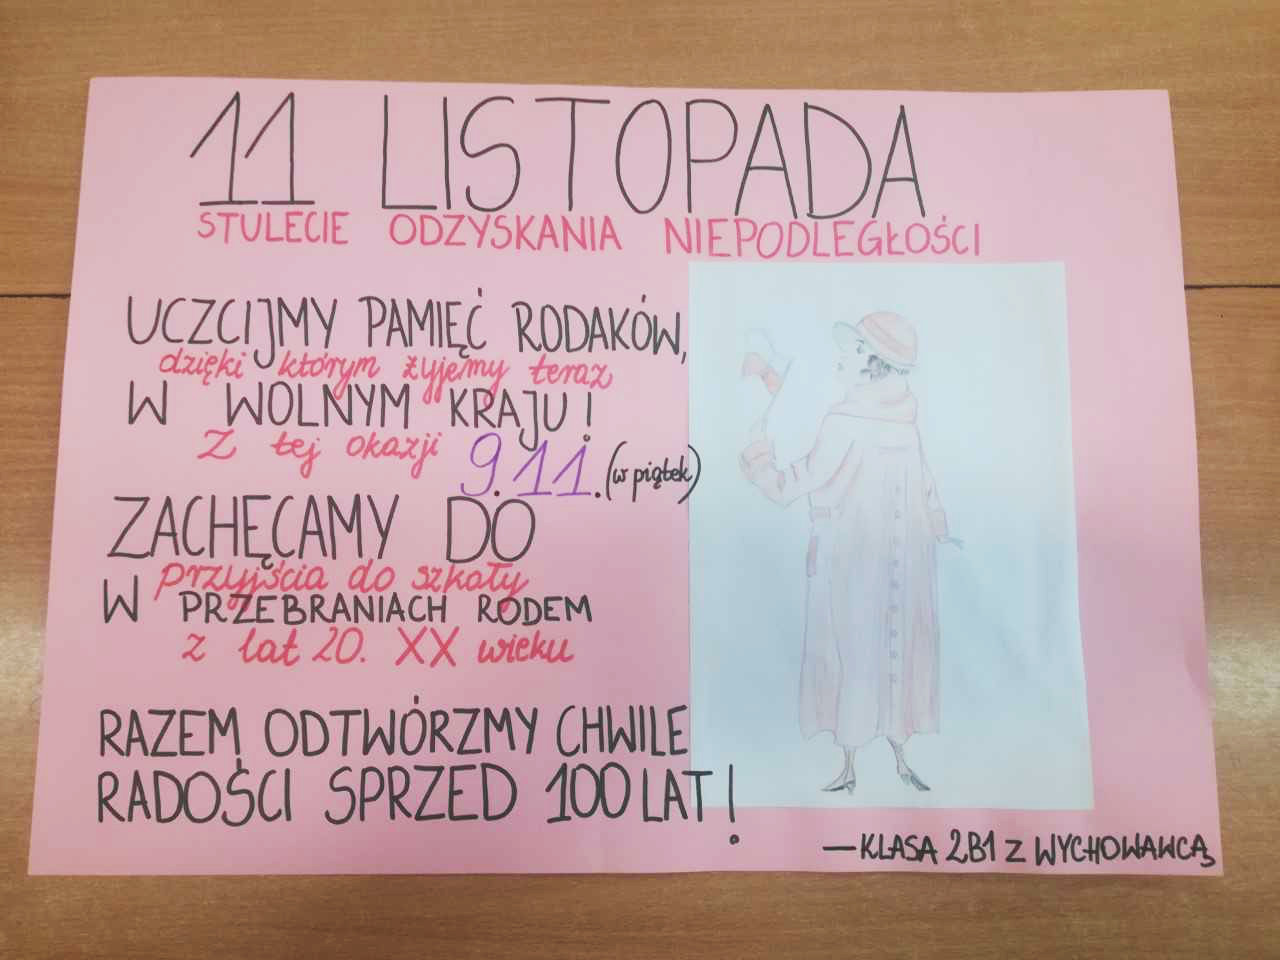 11 LISTOPADA
STULECIE ODZYSKANIA NIEPODLEGŁOŚCI
UCZCIJMY PAMIĘĆ RODAKÓW,
dzięki którym żyjemy teraz
W WOLNYM KRAJU!
Z tej okazji 9.11. (w piątek)
ZACHĘCAMY DO
przyjścia do szkoły
W PRZEBRANIACH RODEM
z lat 20. XX wieku
RAZEM ODTWÓRZMY CHWILE
RADOŚCI SPRZED 100 LAT!
—KLASA 2B1 Z WYCHOWAWCĄ